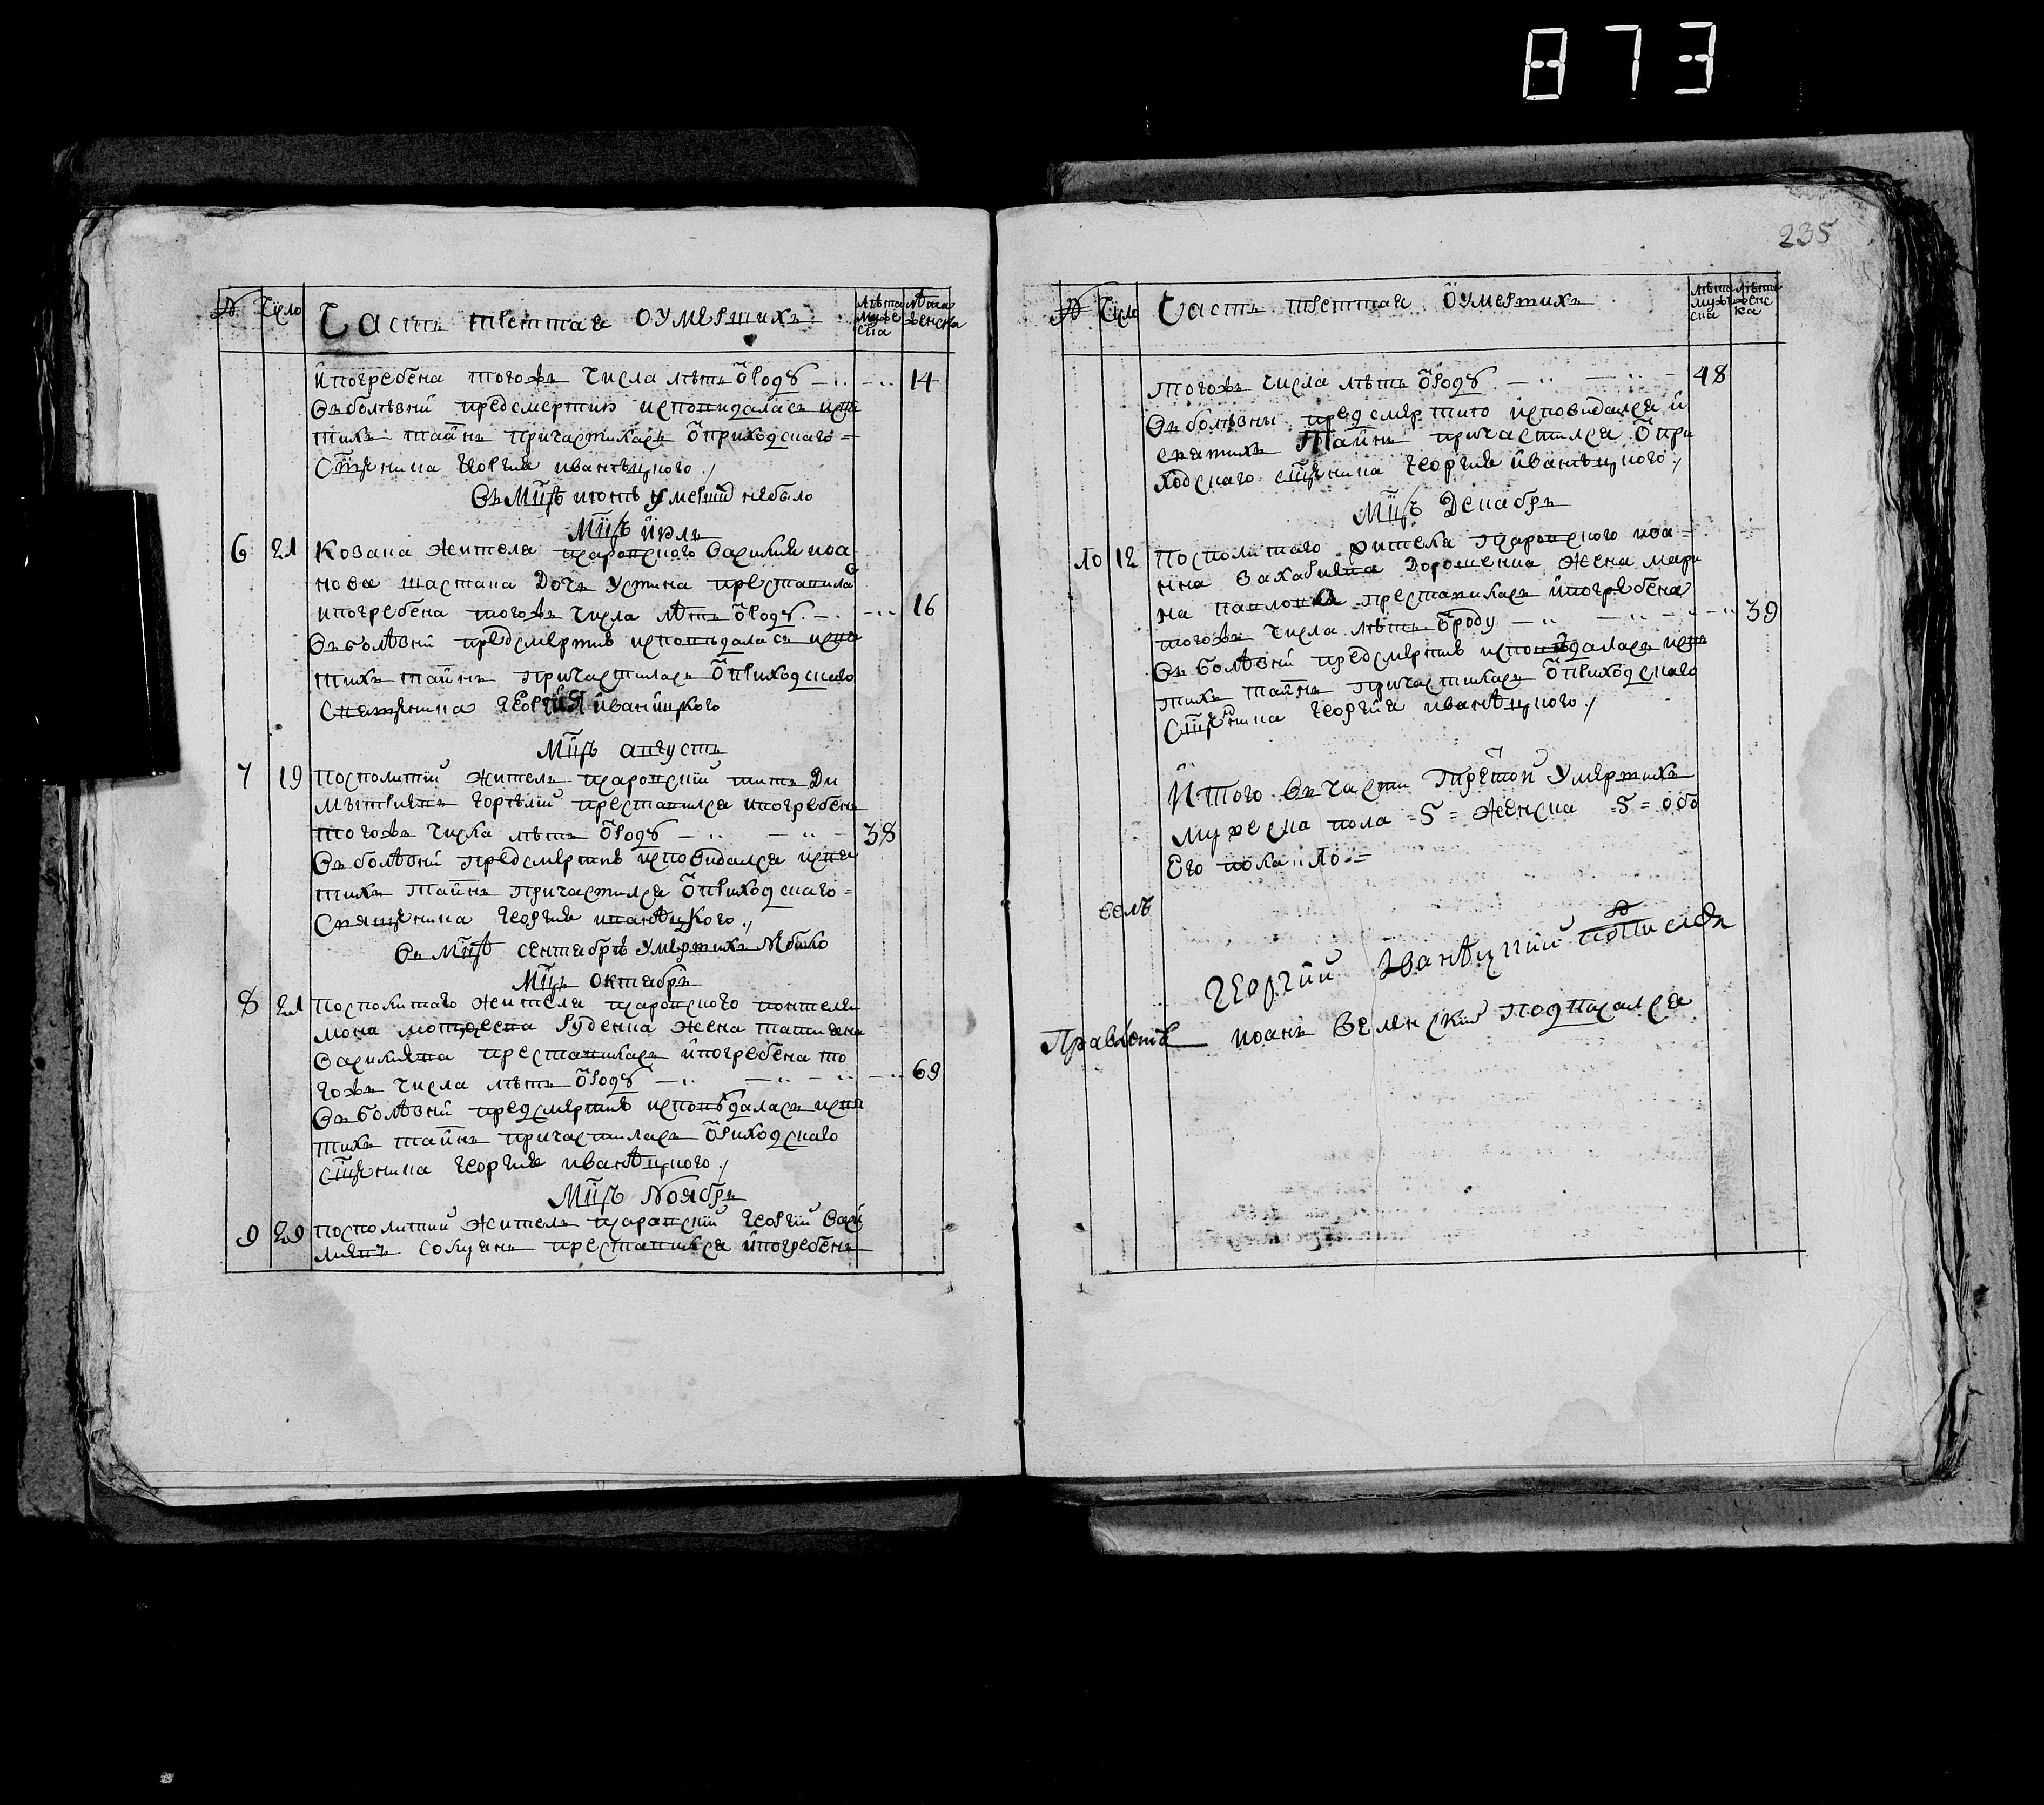 873
№ Число Часть третая оумершихъ Лѣта Мужеска Лѣта женска
ипогребена тогожъ числа лѣтъ ѿроду 14
Въболѣзнѣ предсмертию исповидалась исвя
тихъ таинъ причастилась ѿприходскаго
Сщенника Георгия иванѣцкого
Въ Мцѣ июнѣ умерших небыло
Мцъ июль
6 21 Козака жителя царовского василия иоа
нова шастана Дочь устина преставилас
ипогребена тогожъ числа лѣтъ ѿроду 16
Въболѣзнѣ предсмертию исповѣдалась исвя
тихъ таинъ причастилась ѿприходскаго
Священника Георгия иваницкого
Мцъ августъ
7 19 Посполитий житель царовский титъ Ди
мытриевъ горѣлий преставился ипогребенъ
тогожъ числа лѣтъ ѿроду 38
Въболѣзнѣ предсмертию исповидался исвя
тихъ таинъ причастился ѿприходскаго
Священника Георгия иванѣцкого
Въ Мцѣ сентябрѣ умертихъ Небыло
Мцъ октябрь
8 21 Посполитаго жителя царовского пантелей
мона мотфеева руденка жена татияна
василиева преставилась ипогребена то
гожъ числа лѣтъ ѿроду 69
Въболѣзнѣ предсмертию исповѣдалась исвя
тихъ таинъ причастилась ѿриходскаго
Сщенника Георгия иванѣцкого
Мцъ Ноябрь
9 29 посполитий житель царовский Георгий васи
лиевъ преставился ипогребенъ
235
№ Число Часть третая ѿумертихъ лѣта мужска лѣта женска
тогожъ числа лѣтъ ѿроду 48
Въболѣзны предсмертию исповидался и
святихъ Таинъ причастился ѿпри
ходскаго сщенника Георгия иванѣцкого
Мцъ Декабръ
10 12 Посполитаго жителя царовского иоа
нна захариева Дорошенка жена мари
на павлова преставилась ипогребена
тогожъ числа лѣтъ ѿроду 39
Въ болѣзнѣ предсмертию исповѣдалась исвя
тихъ таинъ причастилась ѿприходскаго
Сщенника Георгия иванѣцкого
Итого въчасти третой умертихъ
мужеска пола =5= женска =5= обо
его пола 10
Георгий Иванѣцкий подписался
иоанъ Веленский подписался